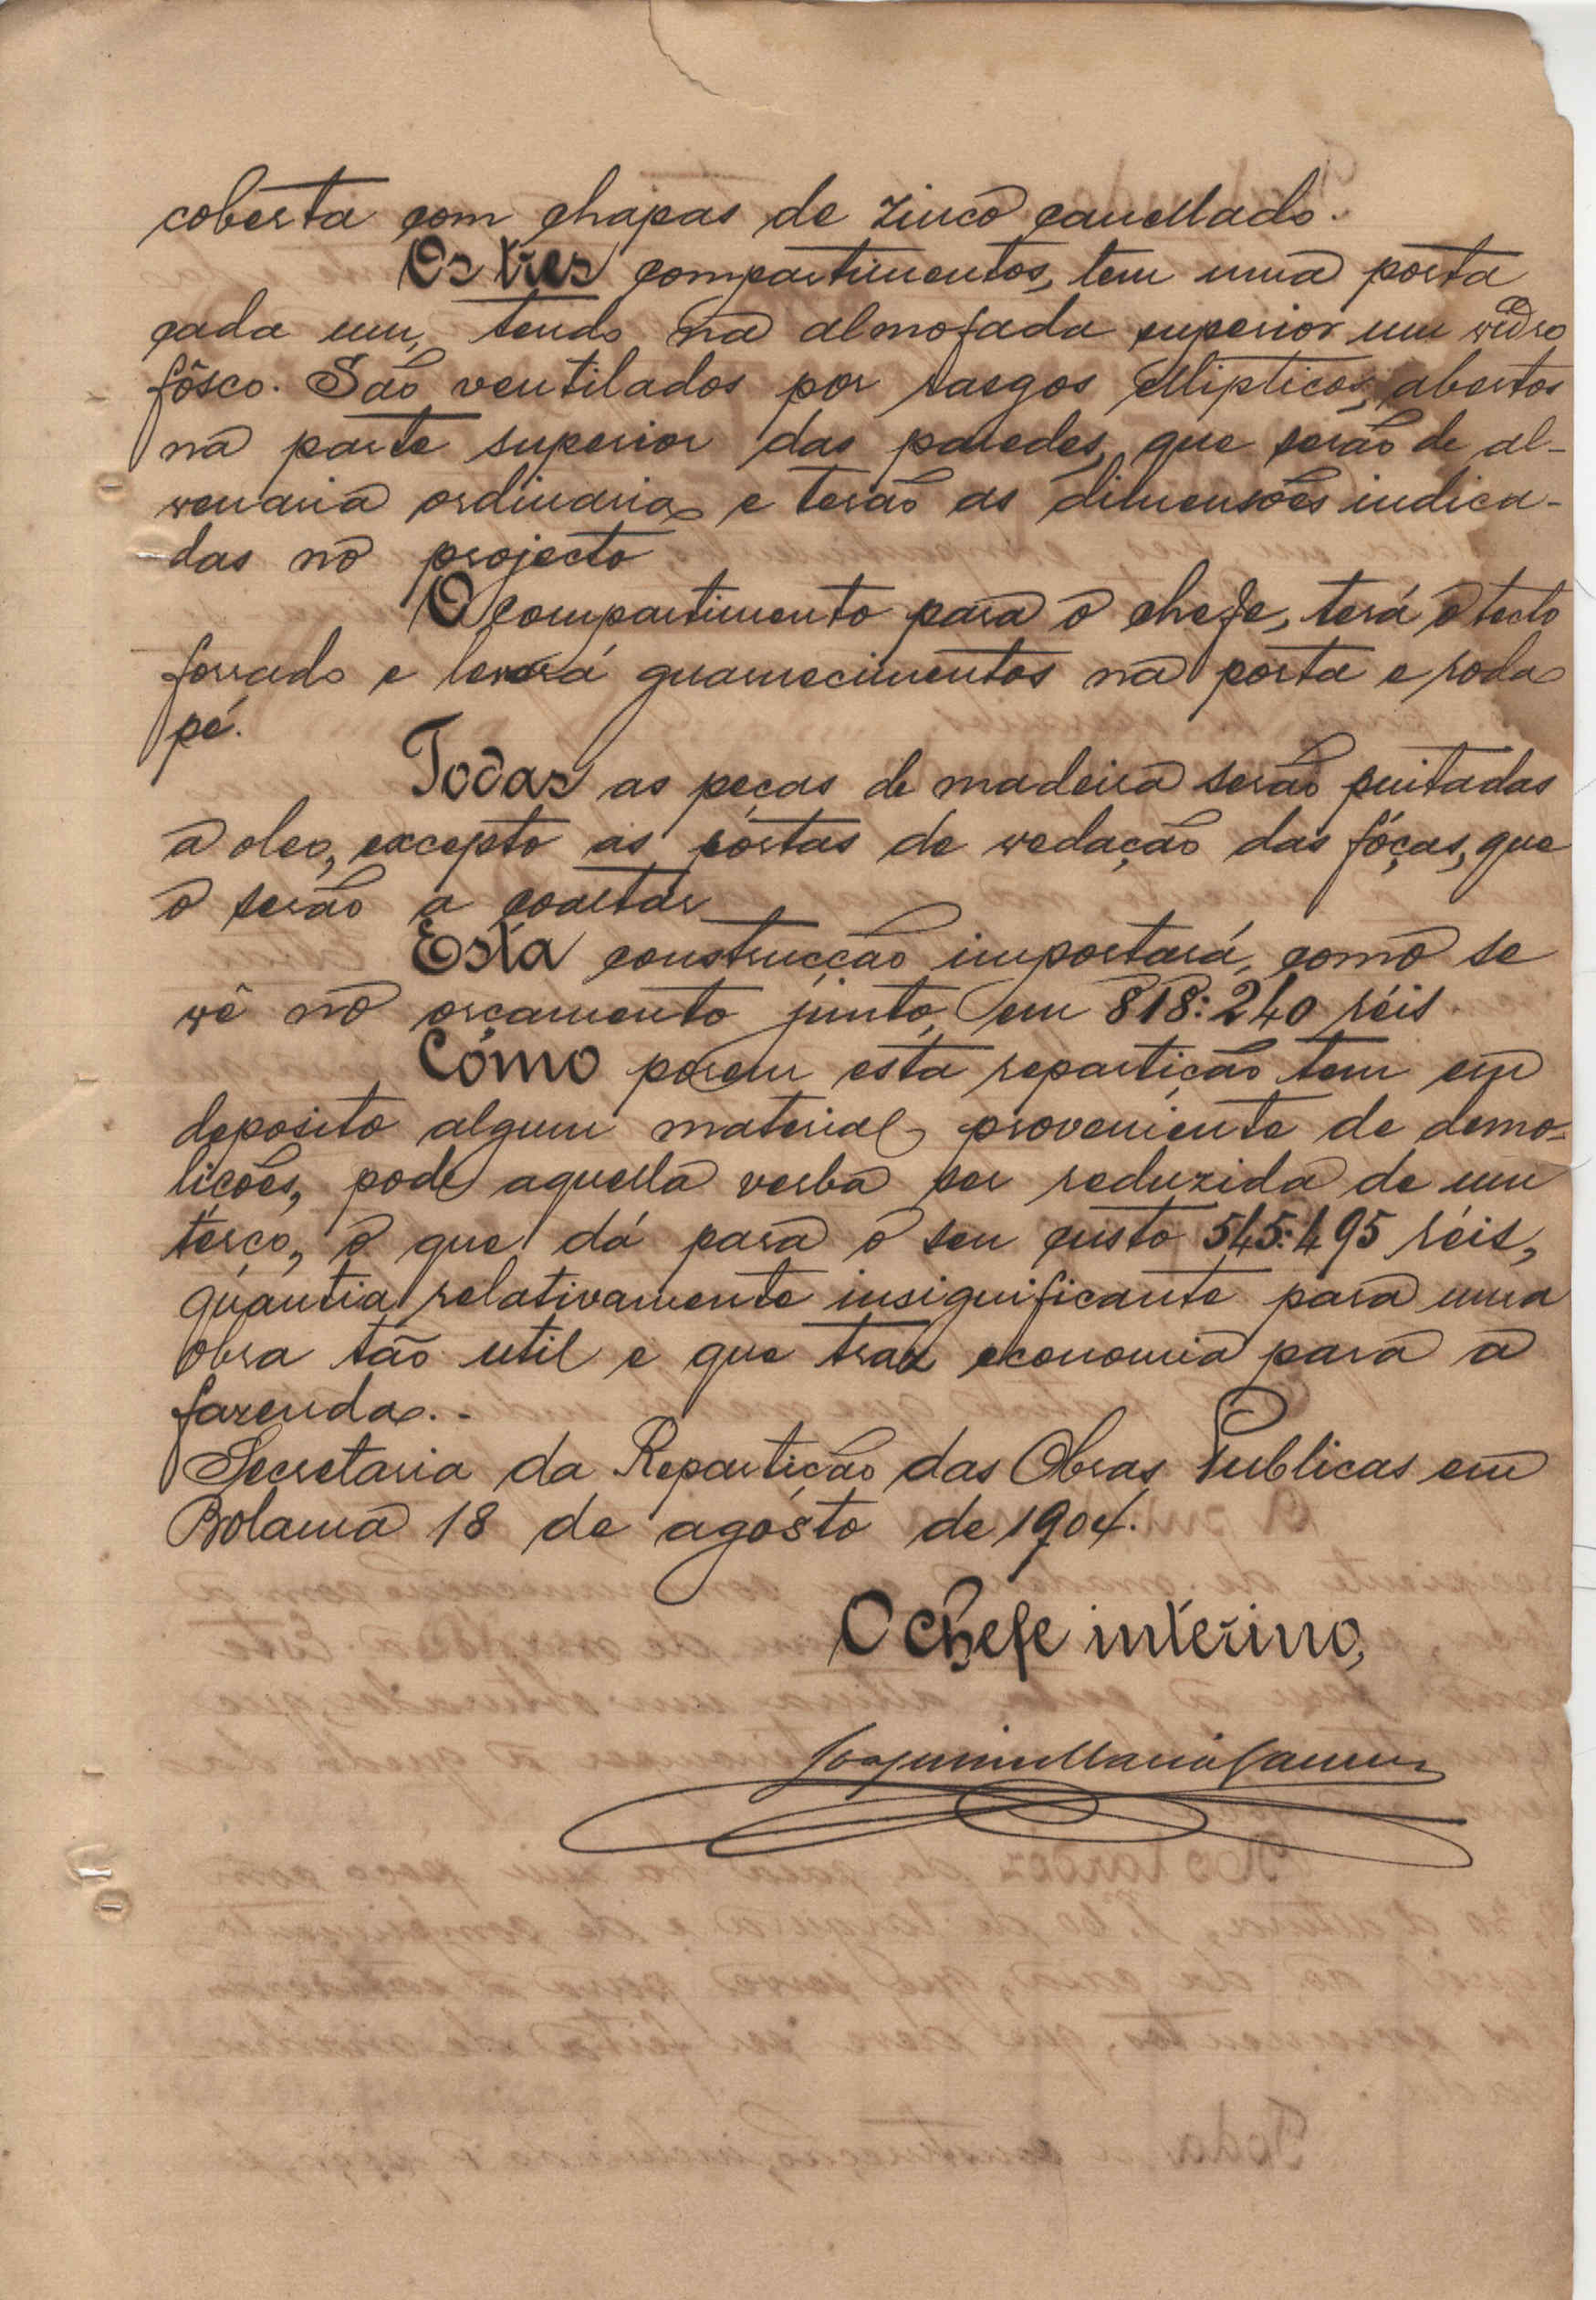 coberta com chapas de zinco canellado.
Os tres compartimentos, tem uma porta
cada um, tendo na almofada superior um vidro
fôsco. São ventilados por rasgos ellipticos, abertos
na parte superior das paredes, que serão de al-
venaria ordinaria e terão as dimensões indica-
das no projecto
O compartimento para o chefe, terá o tecto
forrado e levará guarnecimentos na porta e roda
pé.
Todas as peças de madeira serão pintadas
a oleo, excepto as portas de vedação das fóças, que
o serão a coaltar
Esta construcção importará, como se
vê no orçamento junto, em 818:240 réis.
Cómo porem esta repartição tem em
deposito algum material proveniente de demo-
lições, pode aquella verba ser reduzida de um
terço, o que dá para o seu custo 545:495 réis,
quantia relativamente insignificante para uma
obra tão util e que traz economia para a
fazenda.-
Secretaria da Repartição das Obras Publicas em
Bolama 18 de agosto de 1904.
O chefe interino,
Joaquim Maria